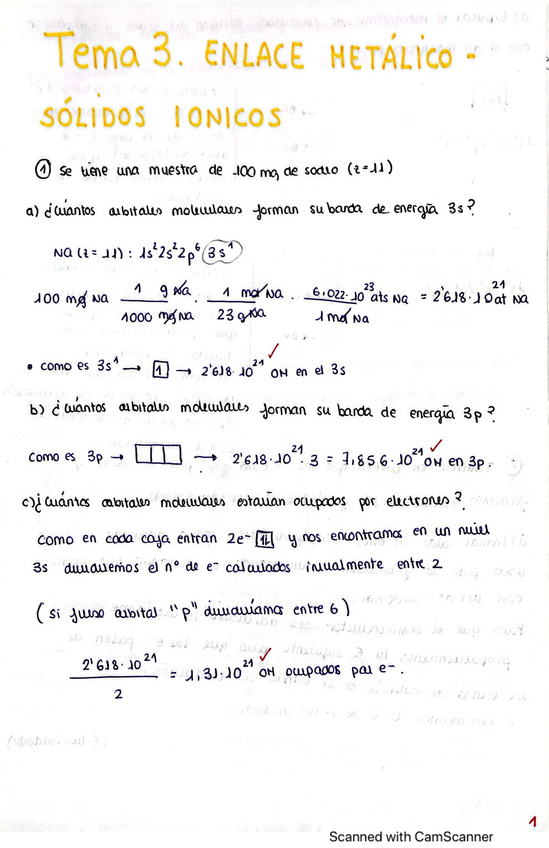 Tema 3. ENLACE METÁLICO -
SÓLIDOS IONICOS
① Se tiene una muestra de 100 mg de sodio (z=11)
a) ¿Cuántos orbitales moleculares forman su banda de energía 3s?
Na (z = 11) : 1s² 2s² 2p⁶ 3s¹
100 mg Na · 1 g Na / 1000 mg Na · 1 mol Na / 23 g Na · 6,022·10²³ ats Na / 1 mol Na = 2'618·10²¹ at Na
• como es 3s¹ → [1] → 2'618·10²¹ OM en el 3s ✓
b) ¿Cuántos orbitales moleculares forman su banda de energía 3p?
Como es 3p → [ ][ ][ ] → 2'618·10²¹·3 = 7,856·10²¹ OM en 3p. ✓
c) ¿Cuántos orbitales moleculares estarían ocupados por electrones?
Como en cada caja entran 2e- [↑↓] y nos encontramos en un nivel
3s dividiremos el nº de e- calculados inicialmente entre 2
(si fuese orbital "p" dividiríamos entre 6)
2'618·10²¹ / 2 = 1,31·10²¹ OM ocupados por e-. ✓
1
Scanned with CamScanner